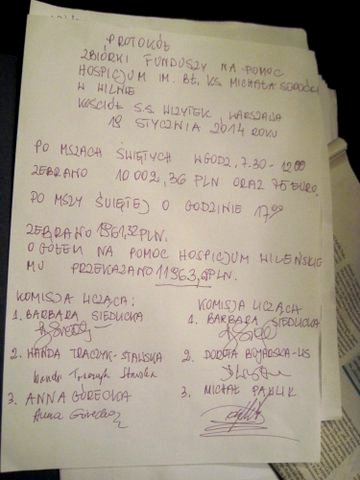 PROTOKÓŁ
ZBIÓRKI FUNDUSZY NA POMOC
HOSPICJUM IM. BŁ. KS. MICHAŁA SOPOĆKI
W WILNIE
KOŚCIÓŁ S.S. WIZYTEK, WARSZAWA
19 STYCZNIA 2014 ROKU
PO MSZACH ŚWIĘTYCH W GODZ. 7.30 - 12.00
ZEBRANO 10 002,36 PLN ORAZ 75 EURO.
PO MSZY ŚWIĘTEJ O GODZINIE 17.00
ZEBRANO 1961,32 PLN.
OGÓŁEM NA POMOC HOSPICJUM WILEŃSKIE
MU PRZEKAZANO 11963,68 PLN.
KOMISJA LICZĄCA:
1. BARBARA SIEDLICKA
2. WANDA TRACZYK-STAWSKA
Wanda Traczyk Stawska
3. ANNA GÓRECKA
Anna Górecka
KOMISJA LICZĄCA
1. BARBARA SIEDLICKA
2. DOROTA
3. MICHAŁ PAWLIK